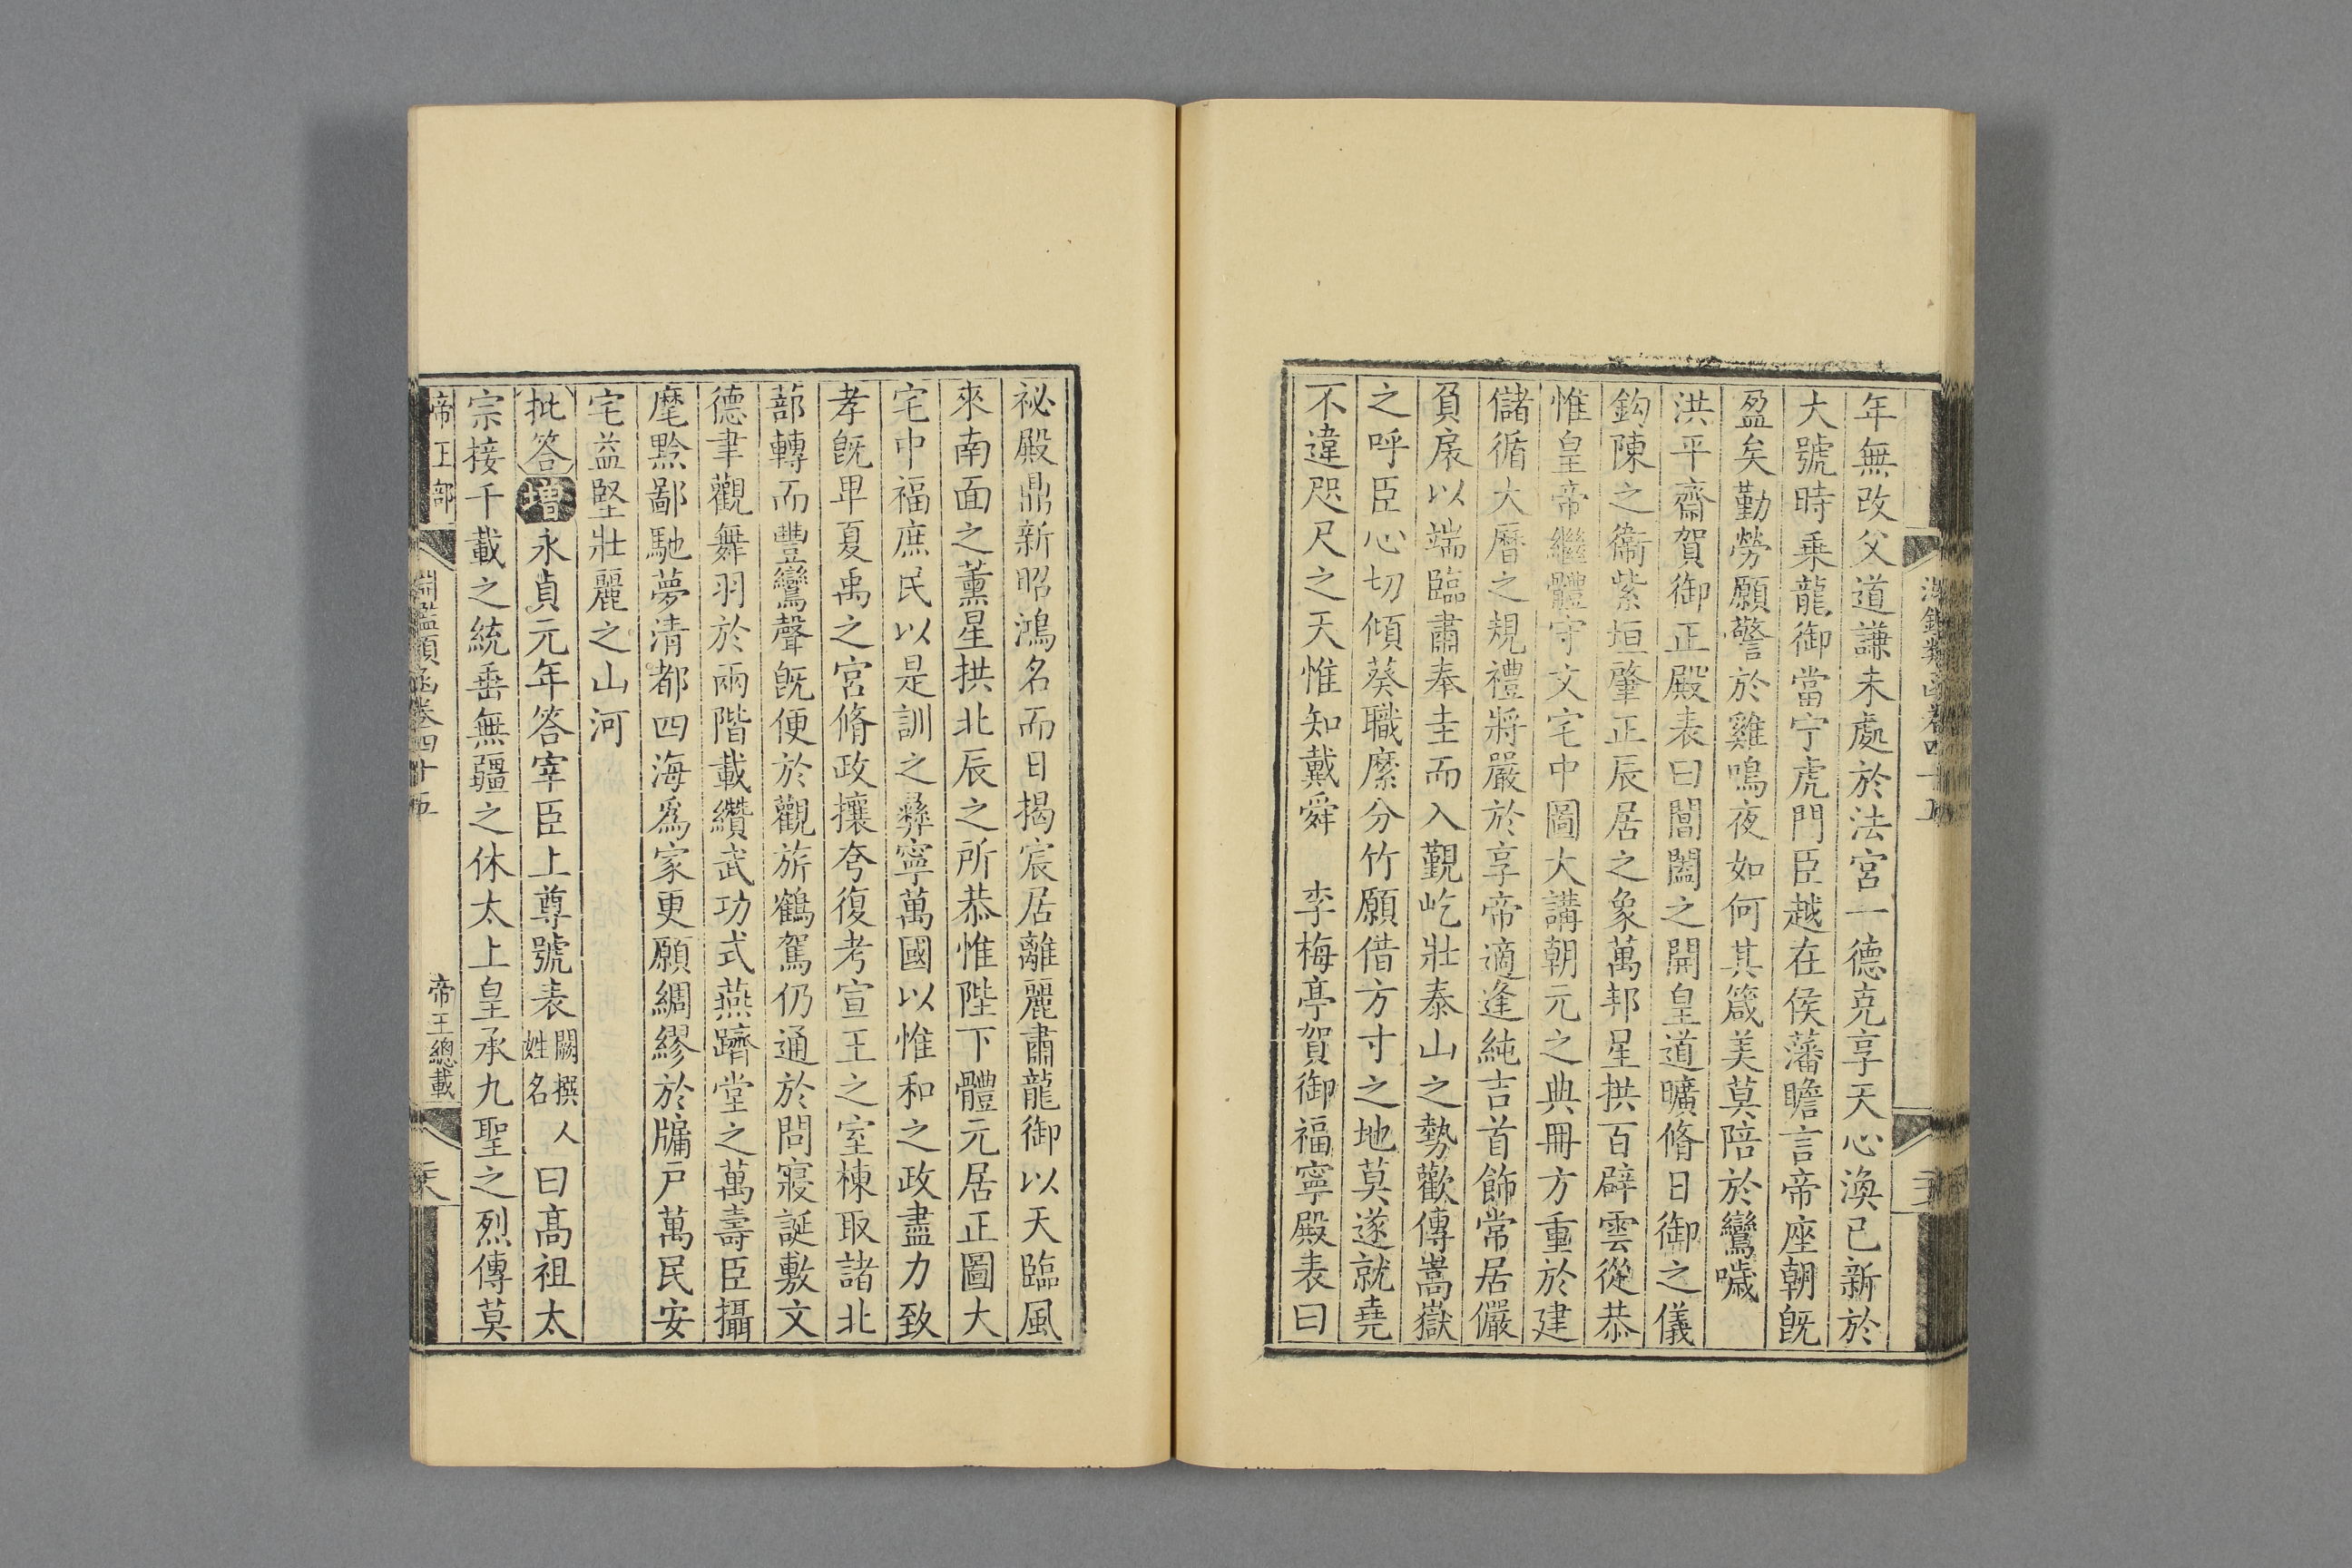 年無改父道謙未處於法宮一德克享天心渙已新於
大號時乗龍御當宁虎門臣越在侯藩瞻言帝座朝旣
盈矣勤勞願警於雞鳴夜如何其箴美莫陪於鸞噦
洪平齋賀御正殿表曰閶闔之開皇道曠脩日御之儀
鈎陳之衞紫垣肇正辰居之象萬邦星拱百辟雲從恭
惟皇帝繼體守文宅中圖大講朝元之典冊方重於建
儲循大曆之規禮將嚴於享帝適逢純吉首飾常居儼
負扆以端臨肅奉圭而入覲屹壯泰山之勢歡傳嵩嶽
之呼臣心切傾葵職縻分竹願借方寸之地莫遂就堯
不違咫尺之天惟知戴舜　李梅亭賀御福寧殿表曰
祕殿鼎新昭鴻名而日揭宸居離麗肅龍御以天臨風
來南面之薰星拱北辰之所恭惟陛下體元居正圖大
宅中福庶民以是訓之彞寧萬國以惟和之政盡力致
孝旣卑夏禹之宮脩政攘夸復考宣王之室棟取諸北
蔀轉而豐鸞聲旣便於觀旂鶴駕仍通於問寢誕敷文
德聿觀舞羽於兩階載纘武功式燕躋堂之萬壽臣攝
麾黔鄙馳夢清都四海爲家更願綢繆於牖戶萬民安
宅益堅壯麗之山河
批答增永貞元年答宰臣上尊號表闕撰人姓名曰高祖太
宗接千載之統垂無疆之休太上皇承九聖之烈傳莫
帝王部
淵鑑類函卷四十五
帝王總載